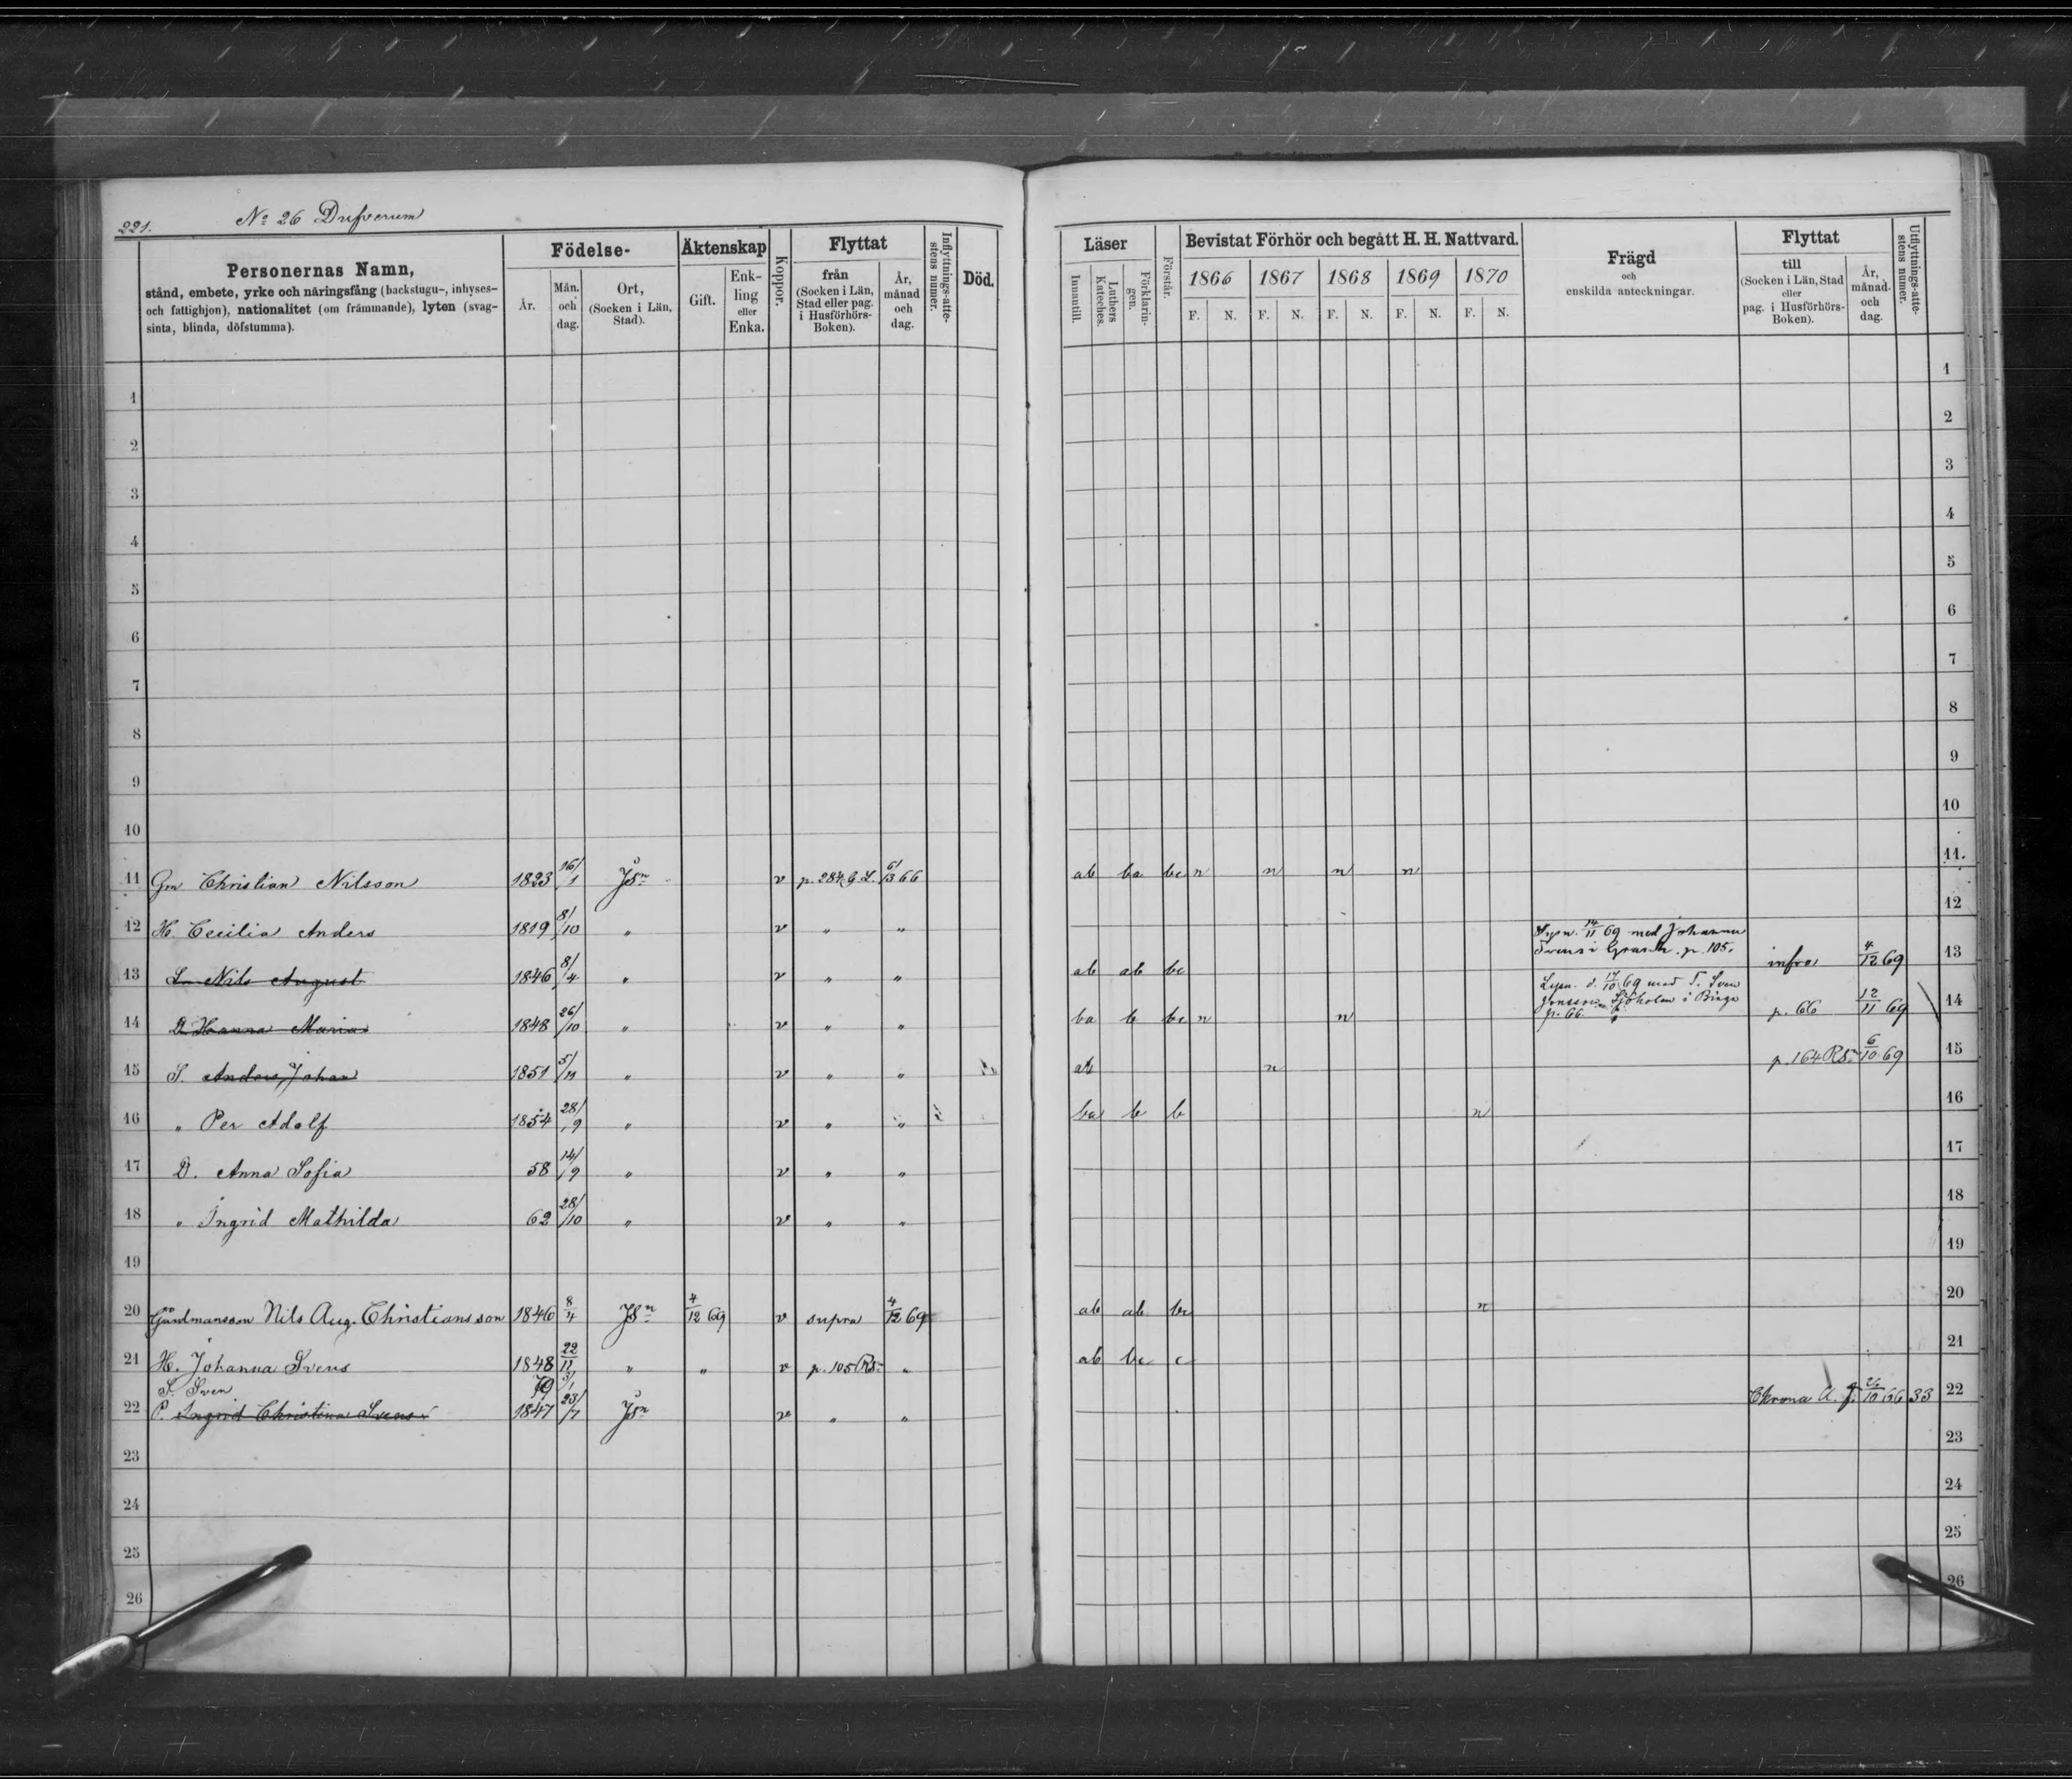 221.
No 26 Dufverum
Personernas Namn,
stånd, embete, yrke och näringsfång (backstugu-, inhyses-
och fattighjon), nationalitet (om främmande), lyten (svag-
sinta, blinda, döfstumma).
Födelse-
År.
Mån. och dag.
Ort,
(Socken i Län,
Stad).
Äktenskap
Gift.
Enk-
ling
eller
Enka.
Koppor.
Flyttat
från
(Socken i Län,
Stad eller pag.
i Husförhörs-
Boken).
År,
månad
och
dag.
Inflyttnings-atte-
stens numer.
Död.
Läser
Innantill.
Luthers
Kateches.
Förklarin-
gen.
Förstår.
Bevistat Förhör och begått H. H. Nattvard.
1866 1867 1868 1869 1870
F. N. F. N. F. N. F. N. F. N.
Frägd
och
enskilda anteckningar.
Flyttat
till
(Socken i Län, Stad
eller
pag. i Husförhörs-
Boken).
År,
månad
och
dag.
Utflyttnings-atte-
stens numer.
1 1
2 2
3 3
4 4
5 5
6 6
7 7
8 8
9 9
10 10
11 Gm Christian Nilsson 1823 16/1 JSn v p. 284 G. L. 6/13 66 ab ba bc n n n n 11.
12 H. Cecilia Anders 1819 8/10 " v " " 12
13 Nils August 1846 8/4 " v " " ab ab bc Lysn. 14/11 69 med Johanna
Svens i p. 105. infra 4/12 69 13
14 D. Hanna Maria 1848 26/10 " v " " ba b bc n n Lysn. d. 17/10 69 med S. Sven
Jonsson Sjöholm i
p. 66. p. 66 12/11 69 14
15 S. Anders Johan 1851 5/11 " v " " ab n p. 164 RS 6/10 69 15
16 " Per Adolf 1854 28/9 " v " " ba b b n 16
17 D. Anna Sofia 58 14/9 " v " " 17
18 " Ingrid Mathilda 62 28/10 " v " " 18
19 19
20 Gårdmansson Nils Aug. Christiansson 1846 8/4 JSn 4/12 69 v supra 4/12 69 ab ab bc n 20
21 H. Johanna Svens 1848 22/11 " " v p. 105 RS " ab bc c 21
S. Sven 70 3/1
22 P. Ingrid Christina Svens 1847 23/7 JSn v " " 10 66 33 22
23 23
24 24
25 25
26 26